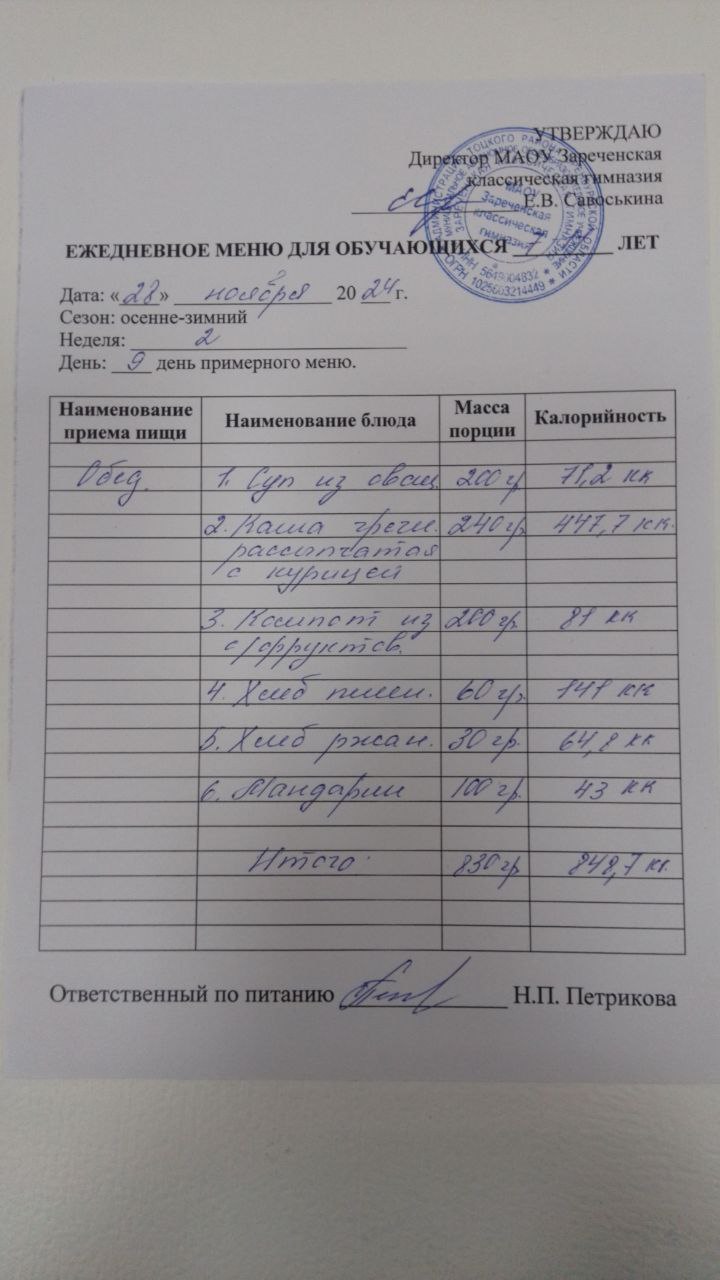 УТВЕРЖДАЮ
Директор МАОУ Зареченская
классическая гимназия
Е.В. Савоськина
МАОУ
Зареченская
классическая
гимназия
ИНН 5649004832 * ОГРН 1025603214449 *
ЕЖЕДНЕВНОЕ МЕНЮ ДЛЯ ОБУЧАЮЩИХСЯ 7 ЛЕТ
Дата: «28» ноября 2024 г.
Сезон: осенне-зимний
Неделя: 2
День: 9 день примерного меню.
Наименование приема пищи Наименование блюда Масса порции Калорийность
Обед 1. Суп из овощ. 200 гр 71,2 кк
2. Каша гречн. 240 гр 447,7 кк.
рассыпчатая
с курицей
3. Компот из 200 гр 81 кк
с/фруктов.
4. Хлеб пшен. 60 гр. 141 кк
5. Хлеб ржан. 30 гр. 64,8 кк
6. Мандарин 100 гр. 43 кк
Итого: 830 гр 848,7 кк.
Ответственный по питанию Н.П. Петрикова